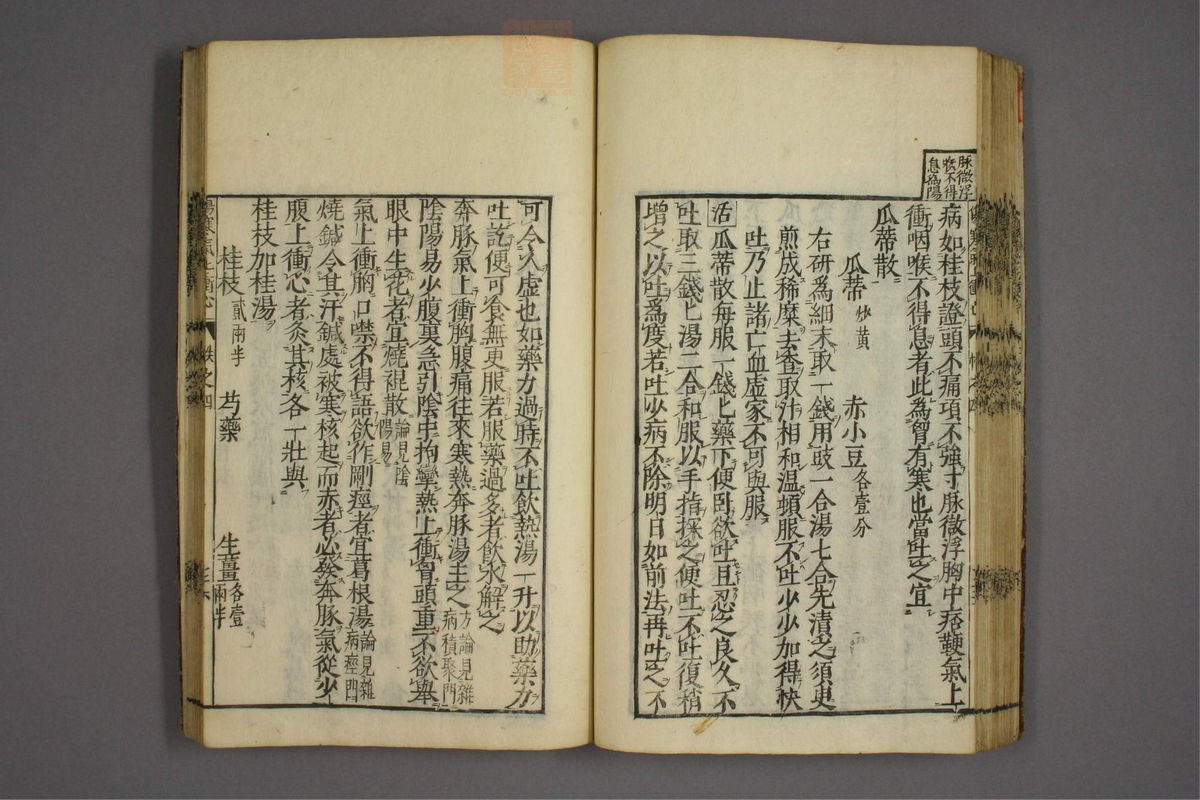 脉微浮
息為陽
病如桂枝證頭不痛項不強寸脉微浮胸中痞鞕氣上
衝咽喉不得息者此為胷有寒也當吐之宜
瓜蒂散
瓜蒂炒黃 赤小豆各壹分
右研爲細末取一錢用豉一合湯七合先漬之須臾
煎成稀糜去查取汁相和温頓服不吐少少加得快
吐乃止諸亡血虛家不可與服
活瓜蒂散每服一錢匕藥下便卧欲吐且忍之良久不
吐取三錢匕湯二合和服以手指探之便吐不吐復稍
增之以吐爲度若吐少病不除明日如前法再吐之不
可令人虛也如藥力過時不吐飲熱湯一升以助藥力
吐訖便可食無更服若服藥過多者飲水解之
奔豚氣上衝胸腹痛往來寒熱奔豚湯主之方論見雜病積聚門
陰陽易少腹裏急引陰中拘攣熱上衝胷頭重不欲舉
眼中生花者宜燒裩散論見陰陽易
氣上衝胸口噤不得語欲作剛痙者宜葛根湯論見雜病痙門
燒鍼令其汗鍼處被寒核起而赤者必發奔豚氣從少
腹上衝心者灸其核各一壯與
桂枝加桂湯
桂枝貳兩半 芍藥 生薑各壹兩半